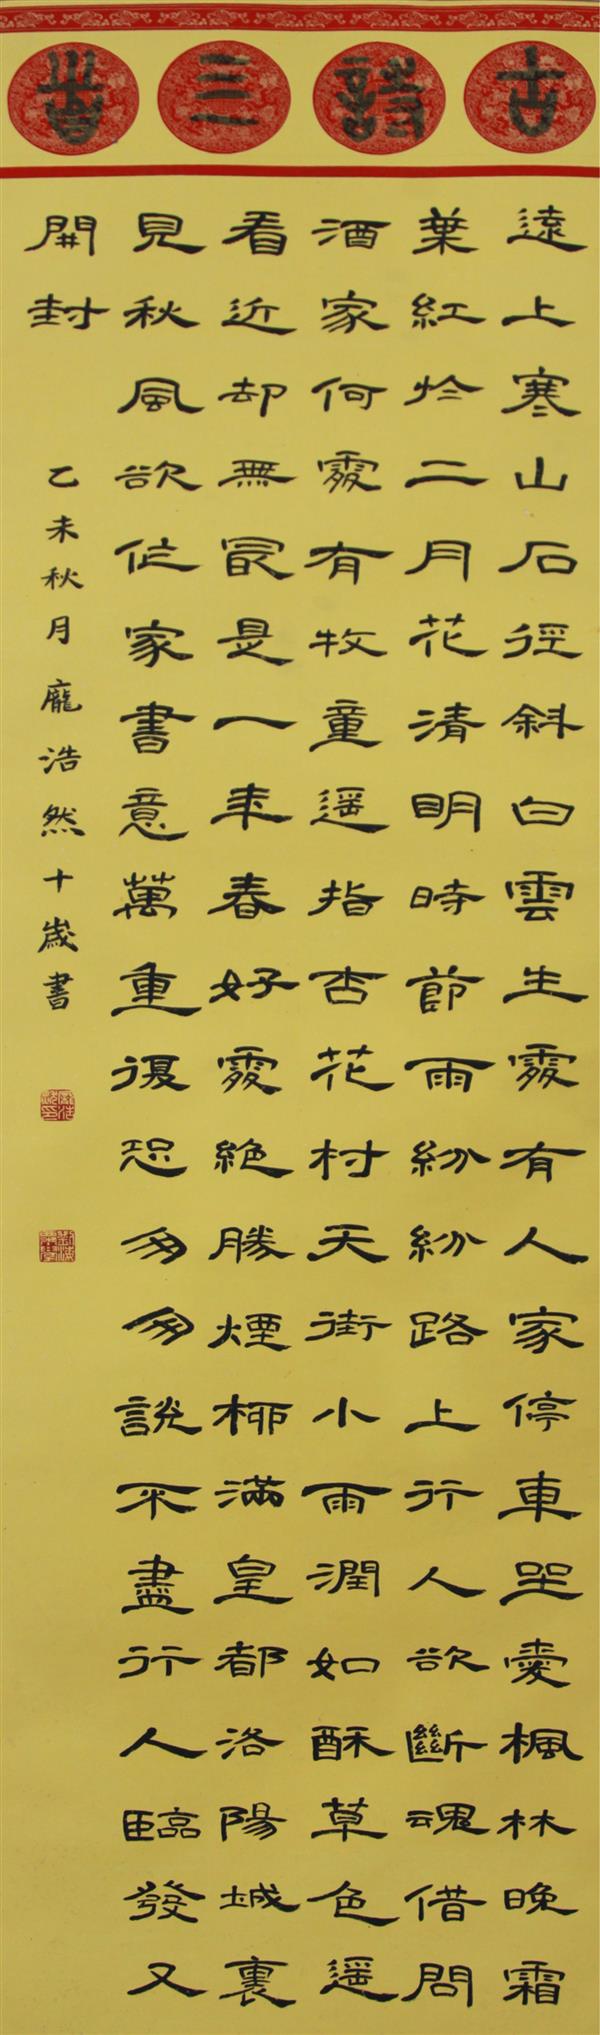 古詩三首
遠上寒山石徑斜白雲生處有人家停車坐愛楓林晚霜
葉紅於二月花清明時節雨紛紛路上行人欲斷魂借問
酒家何處有牧童遥指杏花村天街小雨潤如酥草色遥
看近却無最是一年春好處絶勝煙柳滿皇都洛陽城裏
見秋風欲作家書意萬重復恐匆匆說不盡行人臨發又
開封
乙未秋月龐浩然十歲書